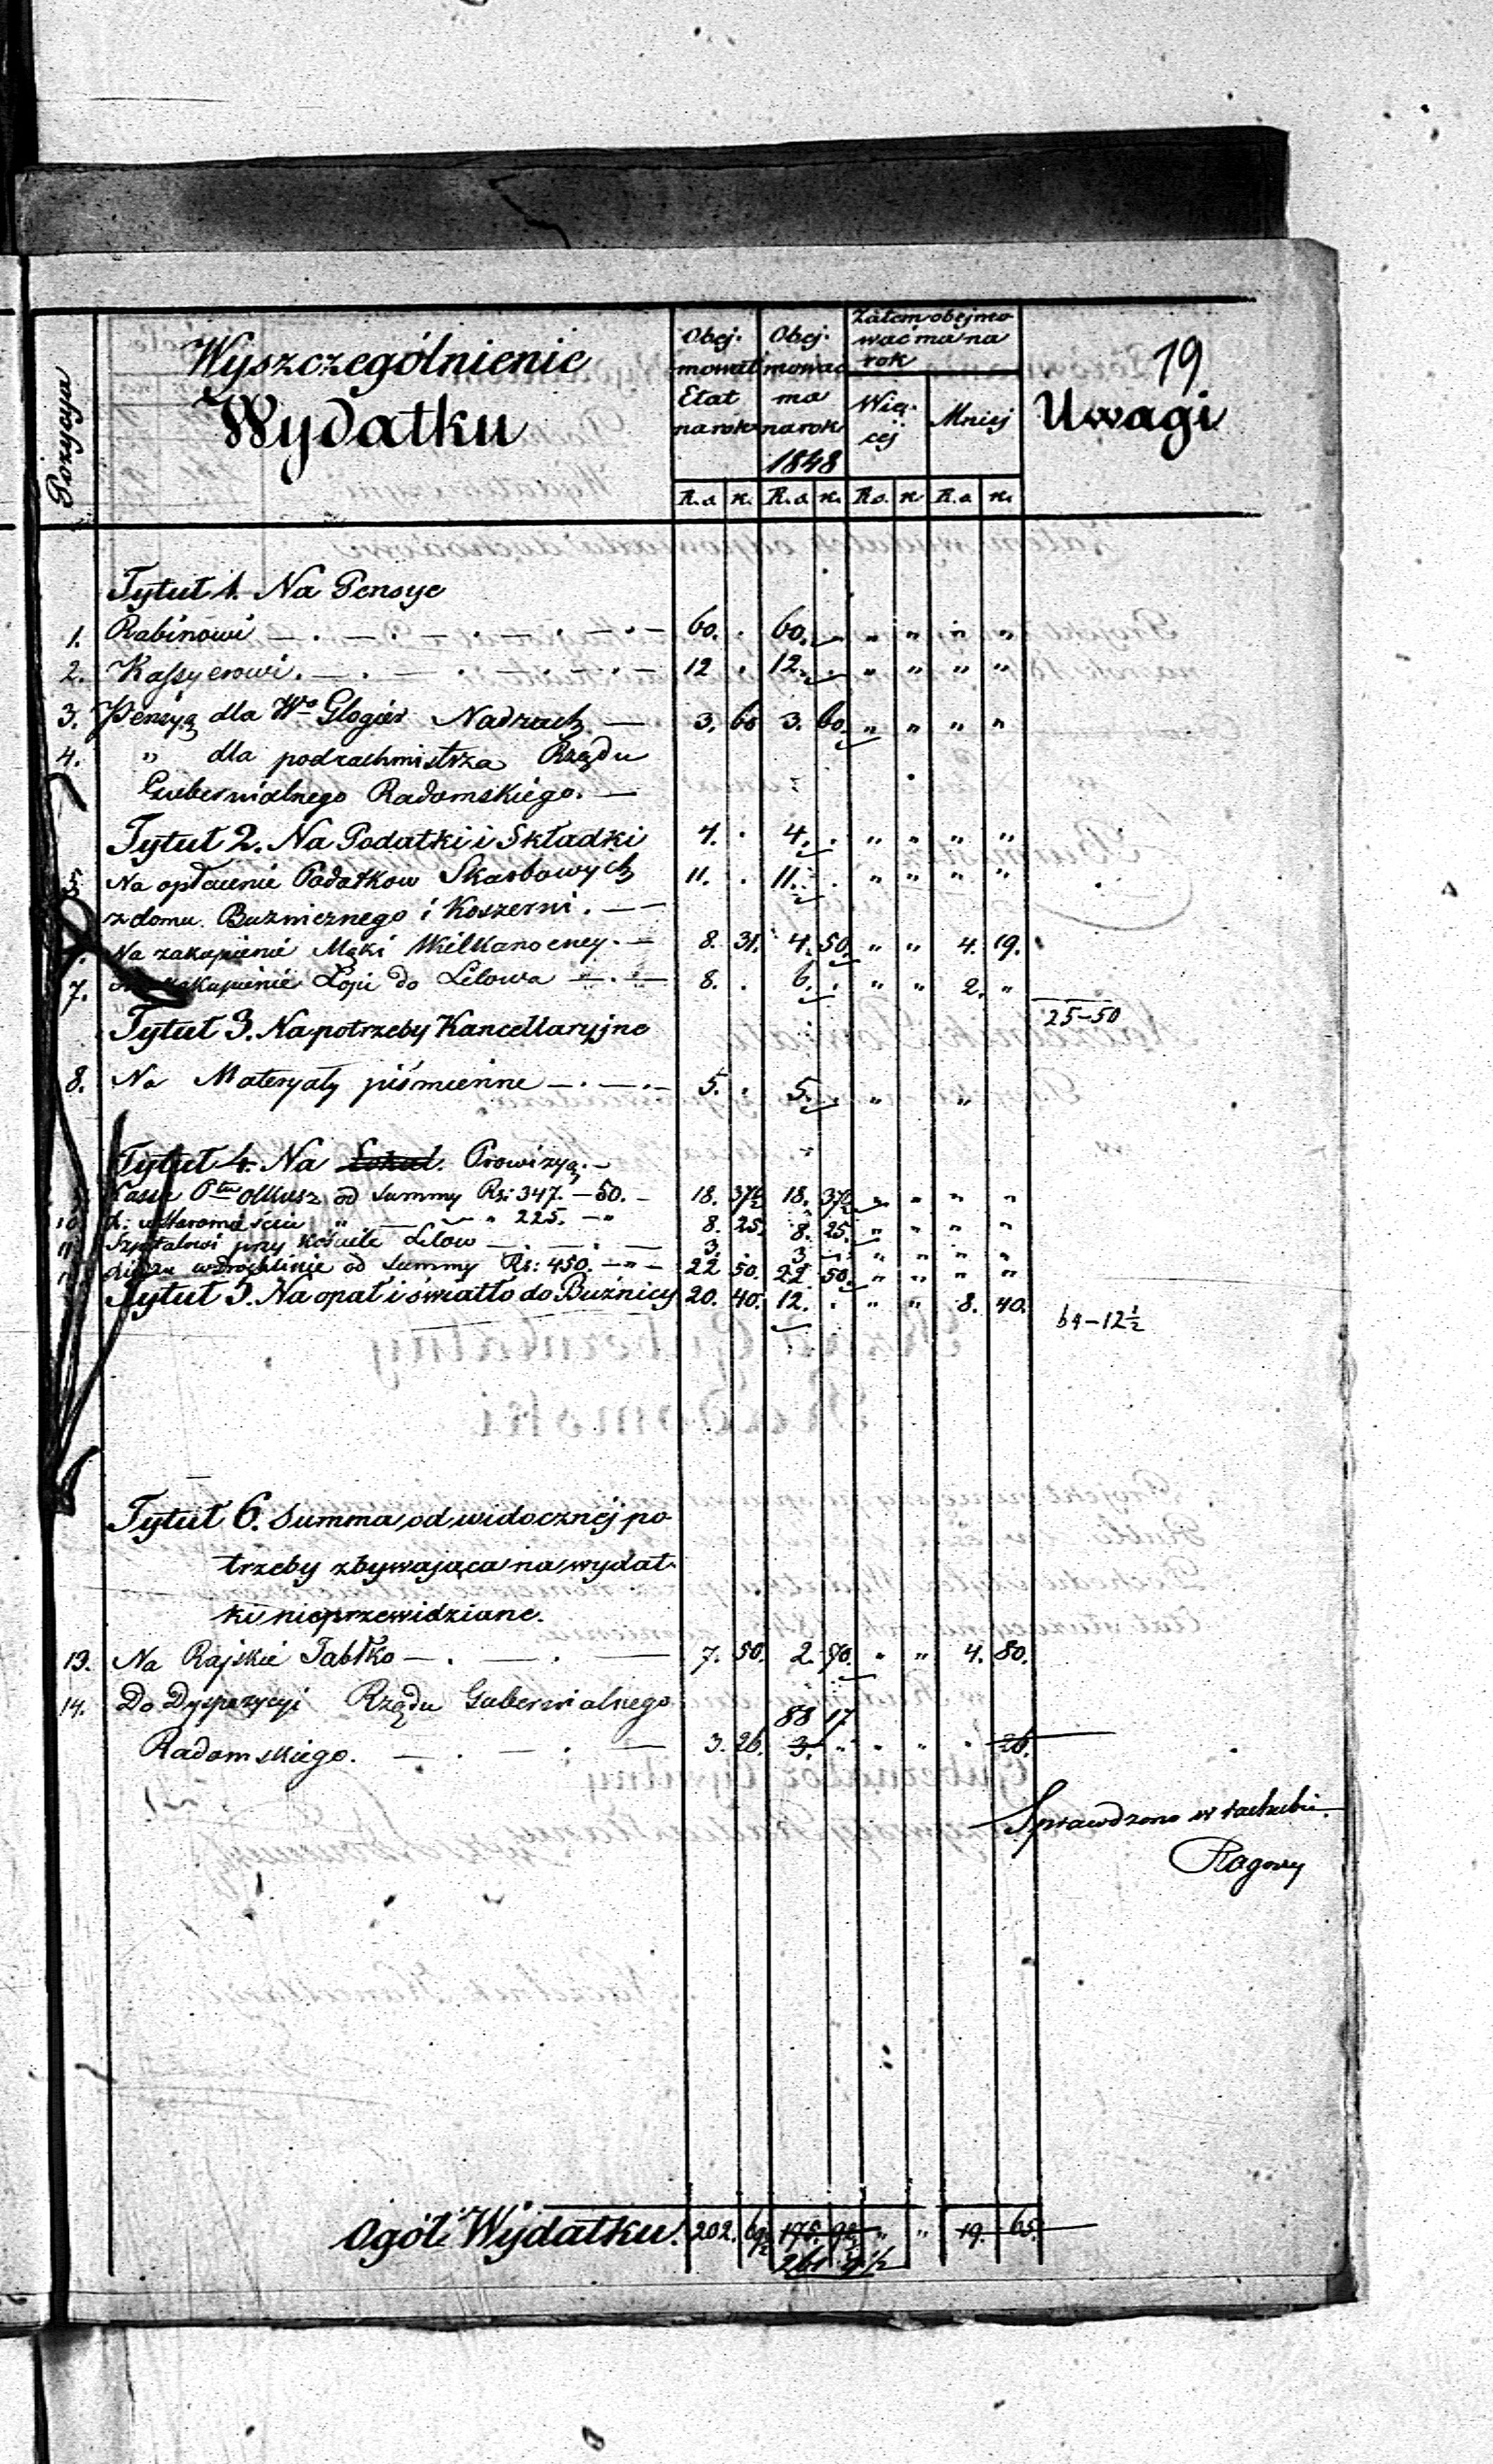 19
Pozycya
Wyszczególnienie
Wydatku
Obej-
mował
Etat
na rok
Obej-
mować
ma
na rok
1848
Zatem obejmo
wać ma na
rok
Wię-
cej
Mniej
Uwagi
R.s. k. R.s. k. R.s. k. R.s. k.
Tytuł 1. Na Pensye
1. Rabinowi 60. . 60. „ „ „ „
2. Kassyerowi. 12 . 12. . „ „ „ „
3. Pensyą dla Wo Glogier Nadrach 3. 60 3. 60. „ „ „ „
4. „ dla podrachmistrza Rządu
Gubernialnego Radomskiego.
Tytuł 2. Na Podatki i Składki 4. . 4. . „ „ „ „
5. Na opłacenie Podatkow Skarbowych 11. . 11. . „ „ „ „
z domu Buznicznego i Koszerni.
Na zakupienie Mąki Wilkanocney. 8. 31. 4. 50. „ „ 4. 19.
7. zakupienie Łoju do Lelowa 8. . 6. . „ „ 2. „
25–50
Tytuł 3. Na potrzeby Kancellaryjne
8. Na Materyały piśmienne 5. . 5. . „ „
Tytuł 4. Na Lokal. Prowizyą.
Kassie Ptu Olkusz od Summy Rs: 347. – 50. 18. 37½ 18. 37½ „ „ „ „
10. 225. „ 8. 25. 8. 25. „ „ „ „
11. Szpitalowi przy kościele Lelow 3. . 3 „ „ „ „
od Summy Rs: 450. 22 50. 22. 50. „ „ „ „
Tytuł 5. Na opał i światło do Buźnicy 20. 40. 12. . „ „ 8. 40.
64–12½
Tytuł 6. Summa od widocznej po
trzeby zbywająca na wydat-
ki nieprzewidziane.
13. Na Rajskie Jabłko 7. 50. 2. 70. „ „ 4. 80.
14. Do Dyspozycyi Rządu Gubernialnego
88 17
Radomskiego. 3. 26. 3. „ „ „ . 26.
Sprawdzono w rachubie.
Ogół Wydatku. 202. 69½ „ „ 19. 65.
261 9½